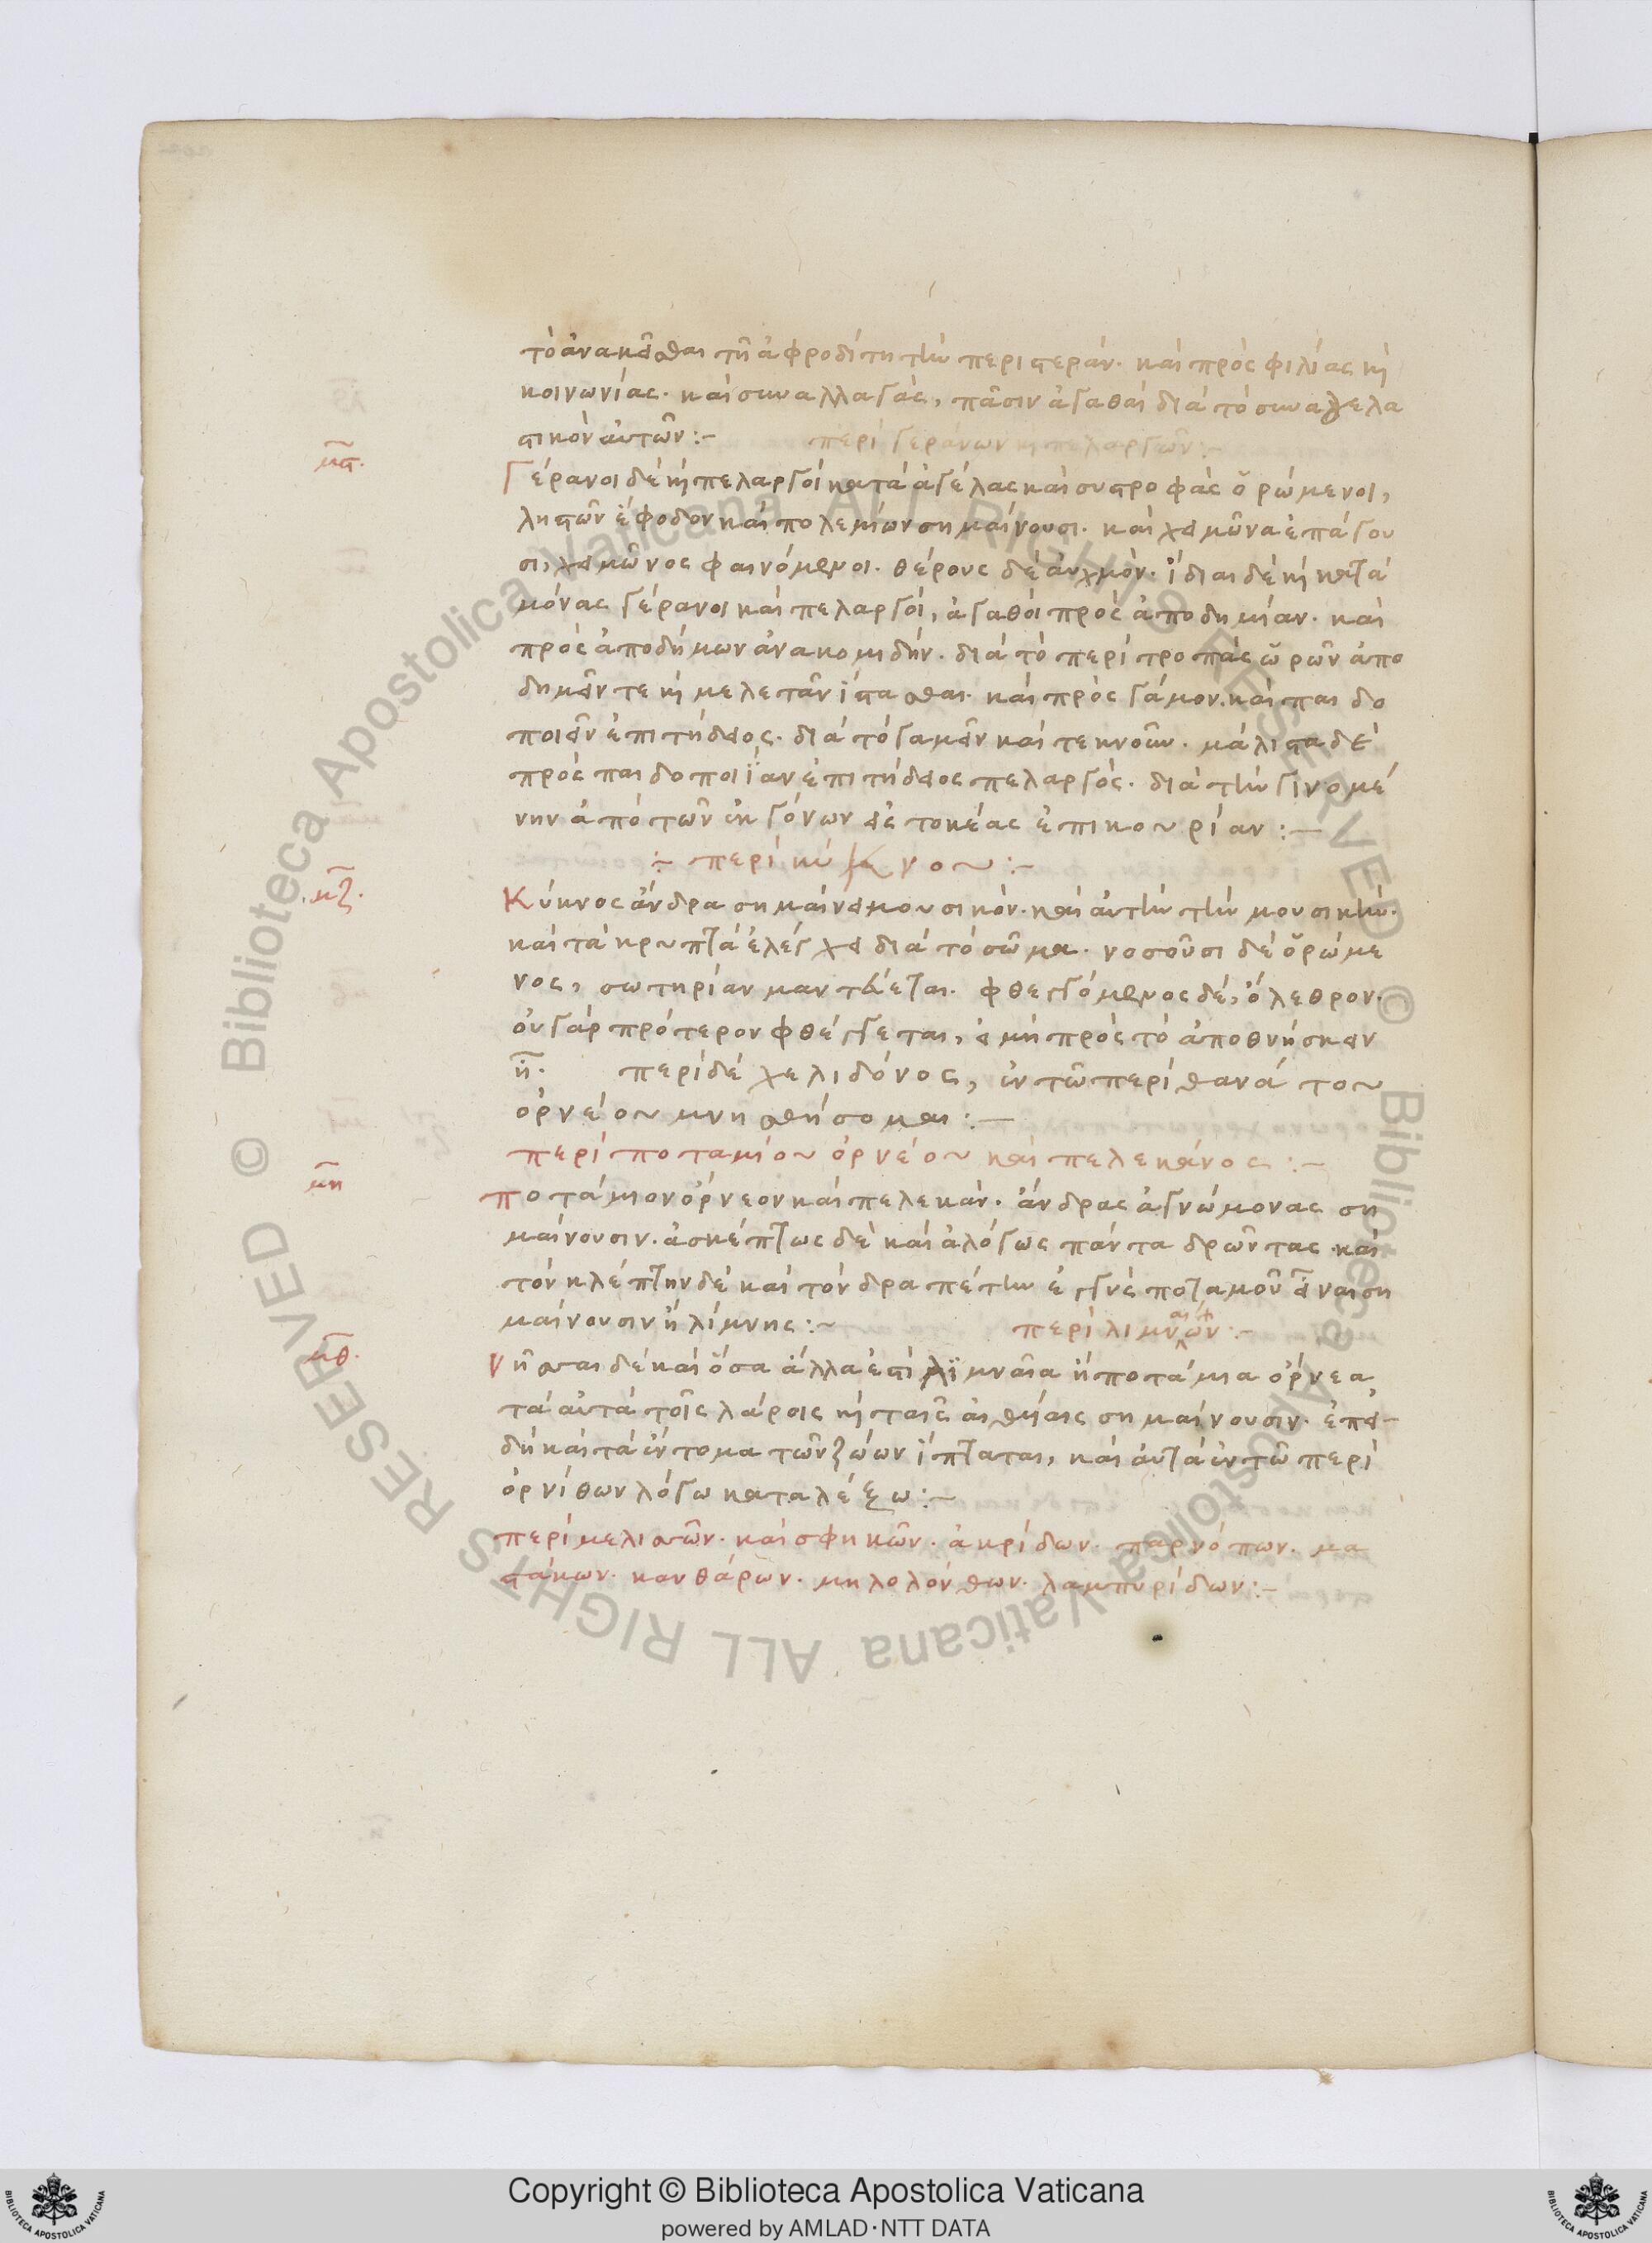 τὸ ἀνακεῖσθαι τῆ ἀφροδίτη τὴν περιστεράν. καὶ πρὸς φιλίας κὶ
κοινωνίας. καὶ συναλλαγὰς, πᾶσιν ἀγαθαὶ διὰ τὸ συναγελα
στικὸν αὐτῶν:~ περὶ γεράνων κὶ πελαργῶν:~
μϛ.
Γέρανοι δὲ κὶ πελαργοὶ κατὰ ἀγέλας καὶ συστροφὰς ὁρώμενοι,
ληστῶν ἔφοδον καὶ πολεμίων σημαίνουσι. καὶ χειμῶνα ἐπάγου
σι, χειμῶνος φαινόμενοι. θέρους δὲ ἀυχμὸν. ἴδιαι δὲ κὶ κατὰ
μόνας γέρανοι καὶ πελαργοὶ, ἀγαθοὶ πρὸς ἀποδημίαν. καὶ
πρὸς ἀποδήμων ἀνακομιδήν. διὰ τὸ περὶ τροπὰς ὡρῶν ἀπο
δημεῖν τε κὶ μελετᾶν ἵπτασθαι. καὶ πρὸς γάμον. καὶ παιδο
ποιεῖν ἐπιτήδειος. διὰ τὸ γαμεῖν καὶ τεκνοῦν. μάλιστα δὲ
πρὸς παιδοποιΐαν ἐπιτήδειος πελαργὸς. διὰ τὴν γινομέ
νην ἀπὸ τῶν ἐκγόνων εἰς τοκέας ἐπικουρίαν:—
:~ περὶ κύκνου:~
μζ.
Κύκνος ἄνδρα σημαίνει μουσικόν. καὶ αὐτὴν τὴν μουσικὴν.
καὶ τὰ κρυπτὰ ἐλέγχει διὰ τὸ σῶμα. νοσοῦσι δὲ ὁρώμε
νος, σωτηρίαν μαντεύεται. φθεγγόμενος δὲ, ὄλεθρον.
οὐ γὰρ πρότερον φθέγγεται, εἰ μὴ πρὸς τὸ ἀποθνήσκειν
ἦ. περὶ δὲ χελιδόνος, ἐν τῶ περὶ θανάτου
ὀρνείου μνησθήσομαι:—
περὶ ποταμίου ὀρνέου καὶ πελεκάνος:~
μη
Ποτάμιον ὄρνεον καὶ πελεκὰν. ἄνδρας ἀγνώμονας ση
μαίνουσιν. ἀσκέπτως δὲ καὶ ἀλόγως πάντα δρῶντας. καὶ
τὸν κλέπτην δὲ καὶ τὸν δραπέτην ἐγγὺς ποταμοῦ εἶναι ση
μαίνουσιν ἢ λίμνης:~ περὶ λιμναίων:~
μθ.
Νῆσσαι δὲ καὶ ὅσα ἄλλα ἐστὶ λιμναῖα ἢ ποτάμια ὄρνεα,
τὰ αὐτὰ τοῖς λάροις κὶ ταῖς αἰθυίαις σημαίνουσιν. ἐπει-
δὴ καὶ τὰ ἔντομα τῶν ζώων ἵπταται, καὶ αὐτὰ ἐν τῶ περὶ
ὀρνίθων λόγω καταλέξω:~
περὶ μελισσῶν. καὶ σφηκῶν. ἀκρίδων. παρνόπων. μα
στάκων. κανθάρων. μηλολονθων. λαμπυρίδων:~
Copyright © Biblioteca Apostolica Vaticana
powered by AMLAD·NTT DATA
© Biblioteca Apostolica Vaticana ALL RIGHTS RESERVED
© Biblioteca Apostolica Vaticana ALL RIGHTS RESERVED
BIBLIOTECA APOSTOLICA VATICANA
BIBLIOTECA APOSTOLICA VATICANA